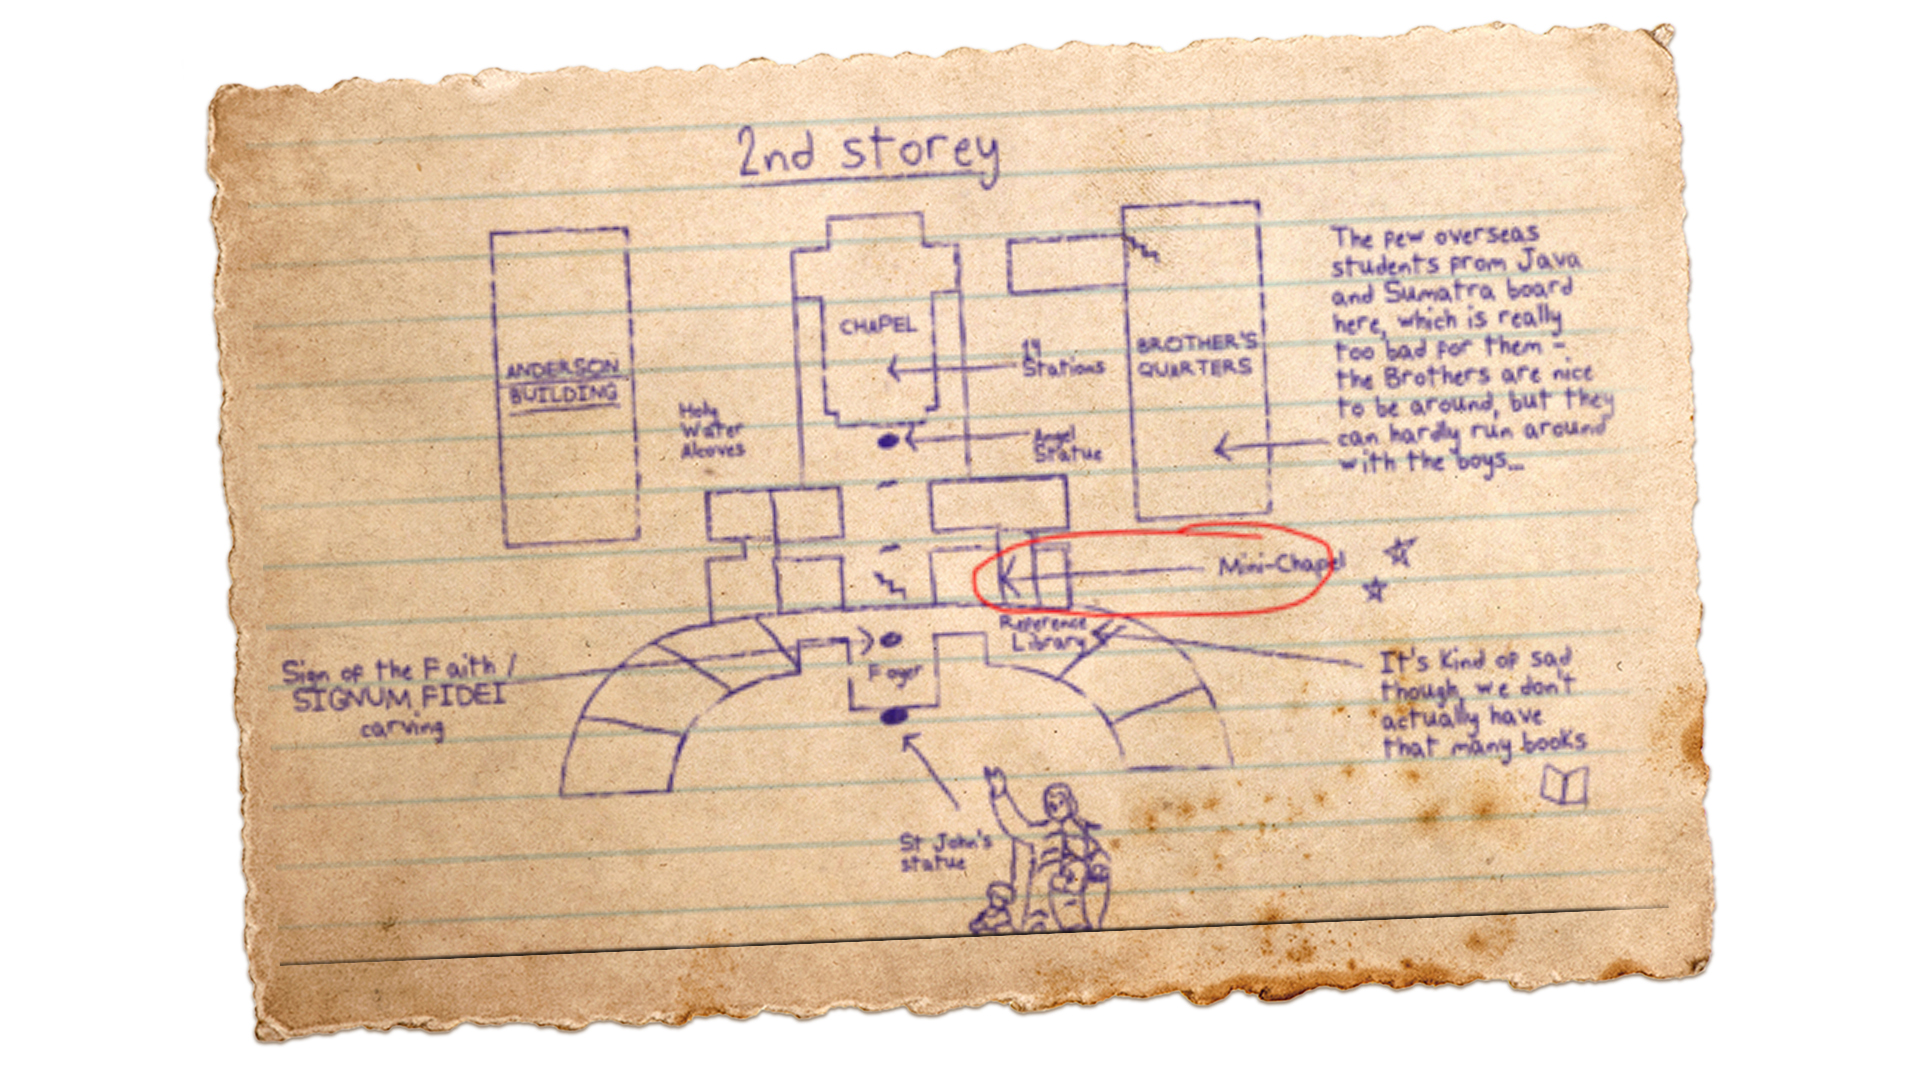 2nd storey
CHAPEL
ANDERSON
BUILDING
14
Stations
BROTHER'S
QUARTERS
Holy
Water
Alcoves
Angel
Statue
The few overseas
students from Java
and Sumatra board
here, which is really
too bad for them -
the Brothers are nice
to be around, but they
can hardly run around
with the boys...
Mini-Chapel
Reference
Library
Sign of the Faith /
SIGNUM FIDEI
carving
Foyer
It's kind of sad
though, we don't
actually have
that many books
St John's
statue